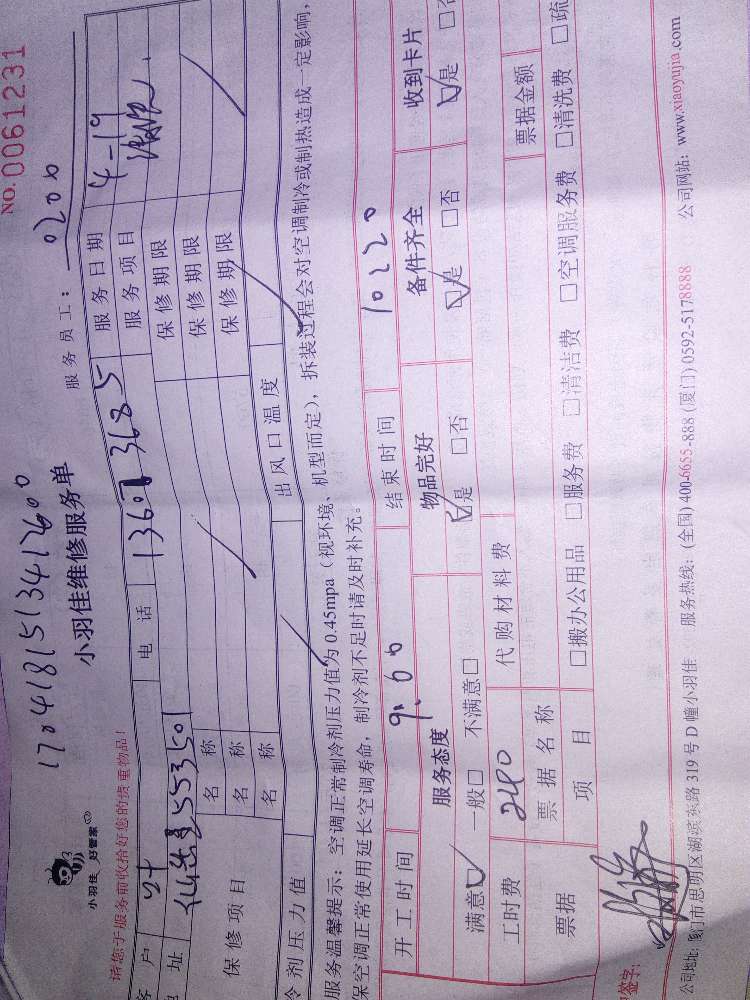 1704181513412600
NO.0061231
小羽佳 好管家
小羽佳维修服务单
服务员工： 0200
请您于服务前收拾好您的贵重物品！
客户 叶 电话 13607 3685 服务日期 4-19
地址 553501 服务项目
保修项目 名称 保修期限
名称 保修期限
名称 保修期限
冷剂压力值 出风口温度
服务温馨提示：空调正常制冷剂压力值为 0.45mpa（视环境、机型而定），拆装过程会对空调制冷或制热造成一定影响，
保空调正常使用延长空调寿命，制冷剂不足时请及时补充。
开工时间 9:00 结束时间 10:20
服务态度 物品完好 备件齐全 收到卡片
满意☑ 一般□ 不满意□ ☑是 □否 ☑是 □否 ☑是 □否
工时费 240 代购材料费
票据 票据名称 票据金额
项目 □搬办公用品 □服务费 □清洁费 □空调服务费 □清洗费 □疏
签字：
公司地址：厦门市思明区湖滨东路 319 号 D 幢小羽佳 服务热线：(全国) 400-6655-888 (厦门) 0592-5178888 公司网站：www.xiaoyujia.com